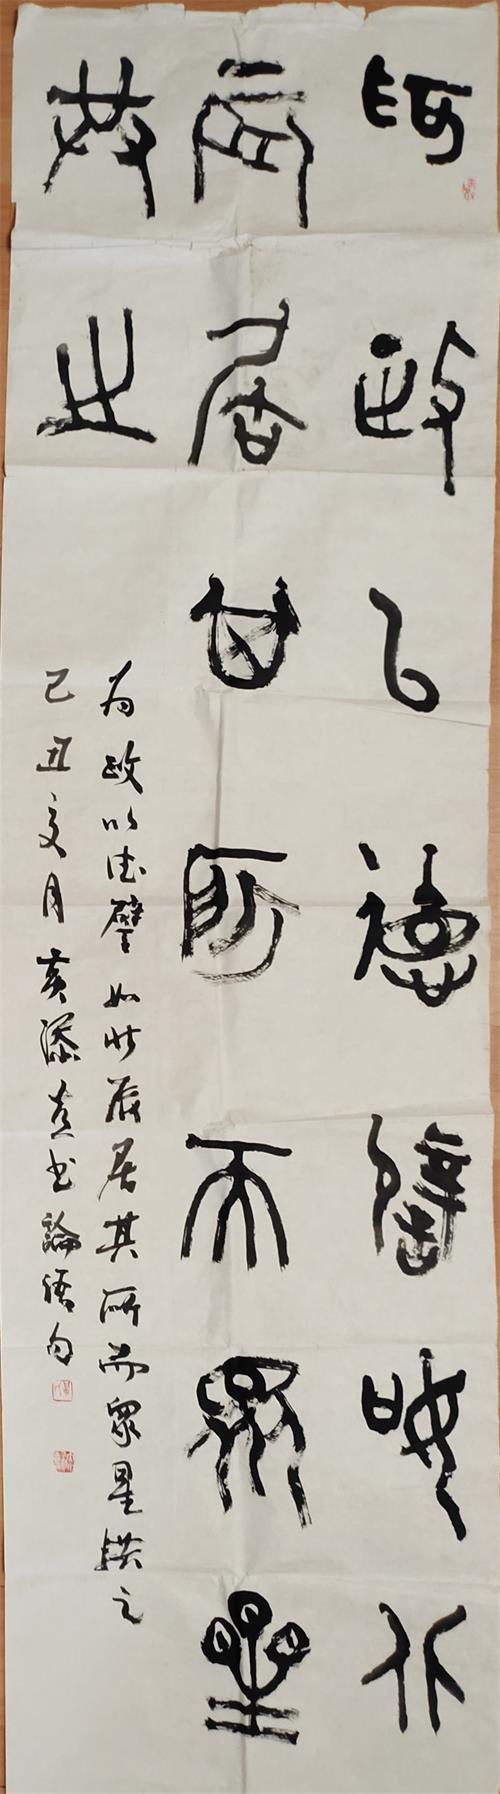 為政以德譬如北
辰居其所而眾星
共之
為政以德譬如北辰居其所而眾星拱之
己丑亥月黄书論語句